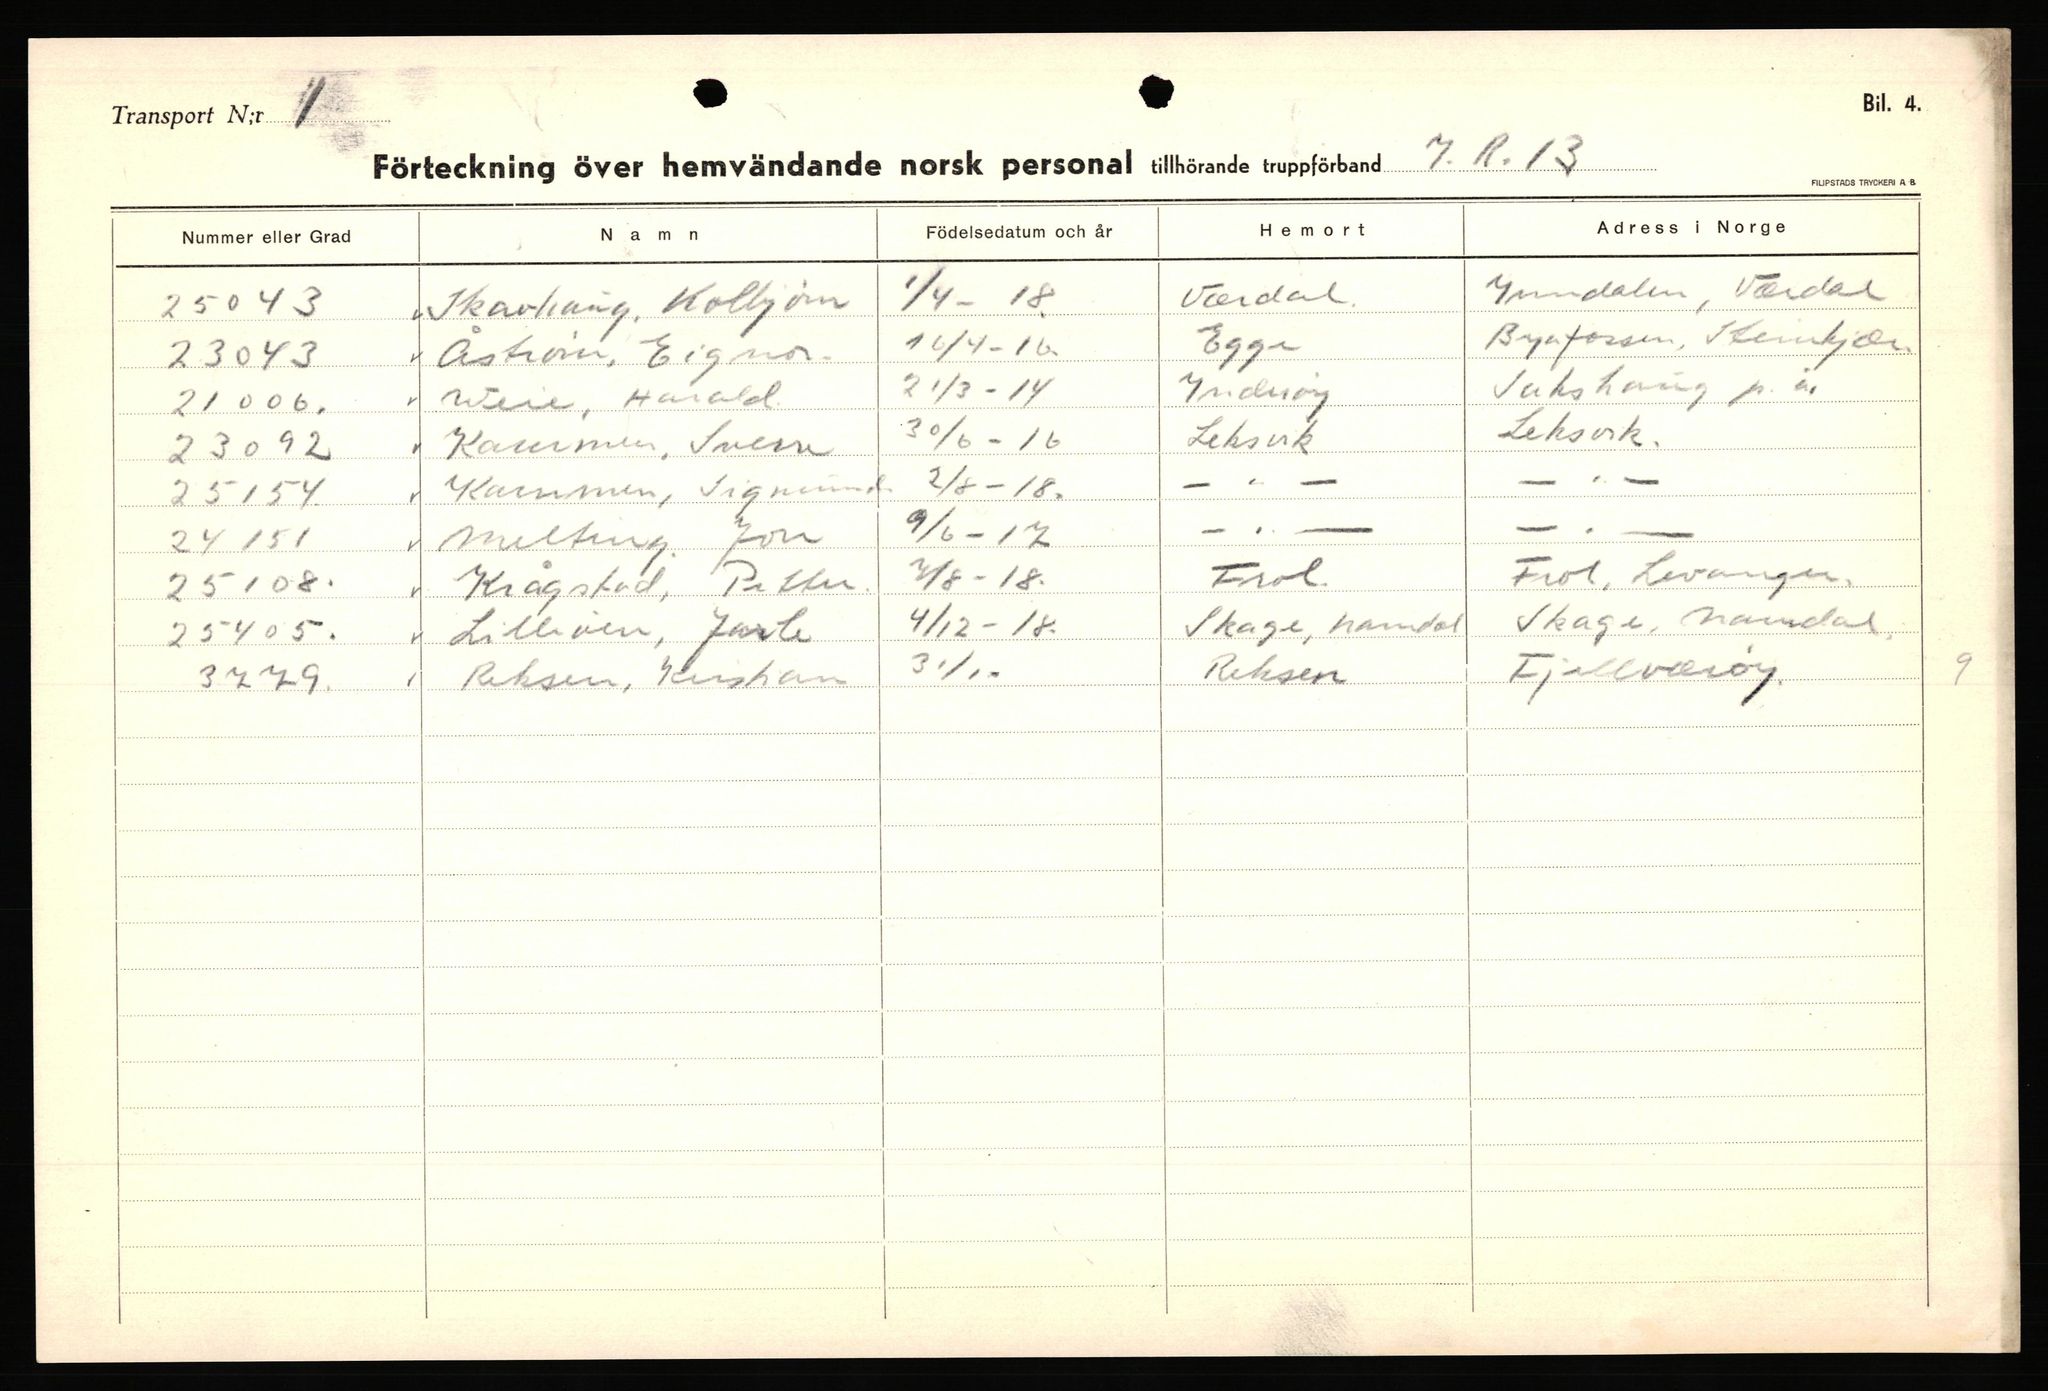 Transport N;r 1
Bil. 4.
Förteckning över hemvändande norsk personal tillhörande truppförband I. R. 13
FILIPSTADS TRYCKERI A B
Nummer eller Grad Namn Födelsedatum och år Hemort Adress i Norge
25043 Skavhaug, Kolbjörn 1/4 - 18. Værdal. Inndalen, Værdal
23043 Åström, 16/4 - 16. Egge Byafossen, Steinkjær.
21006. Weie, Harald 21/3 - 14 Inderöy Sakshaug p. å.
23092 Kammen, Sverre 30/6 - 16 Leksvik Leksvik.
25154. Kammen, Sigmund 2/8 - 18. — " — — " —
24151 Melting, Jon 9/6 - 17 — " — — " —
25108. Krågstad, Petter. /8 - 18. Frol. Frol, Levanger.
25405. Jarle 4/12 - 18. Skage, Namdal Skage, Namdal.
3779. Reksen, Kristian Reksen Fjellværöy. 9